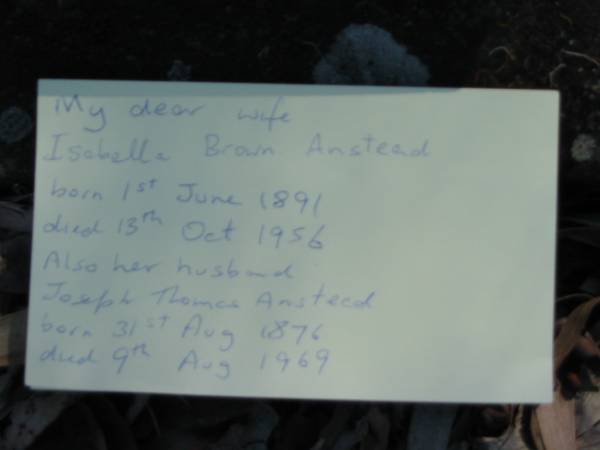 My dear wife
Isabella Brown Anstead
born 1st June 1891
died 13th Oct 1956
Also her husband
Joseph Thomas Anstead
born 31st Aug 1876
died 9th Aug 1969